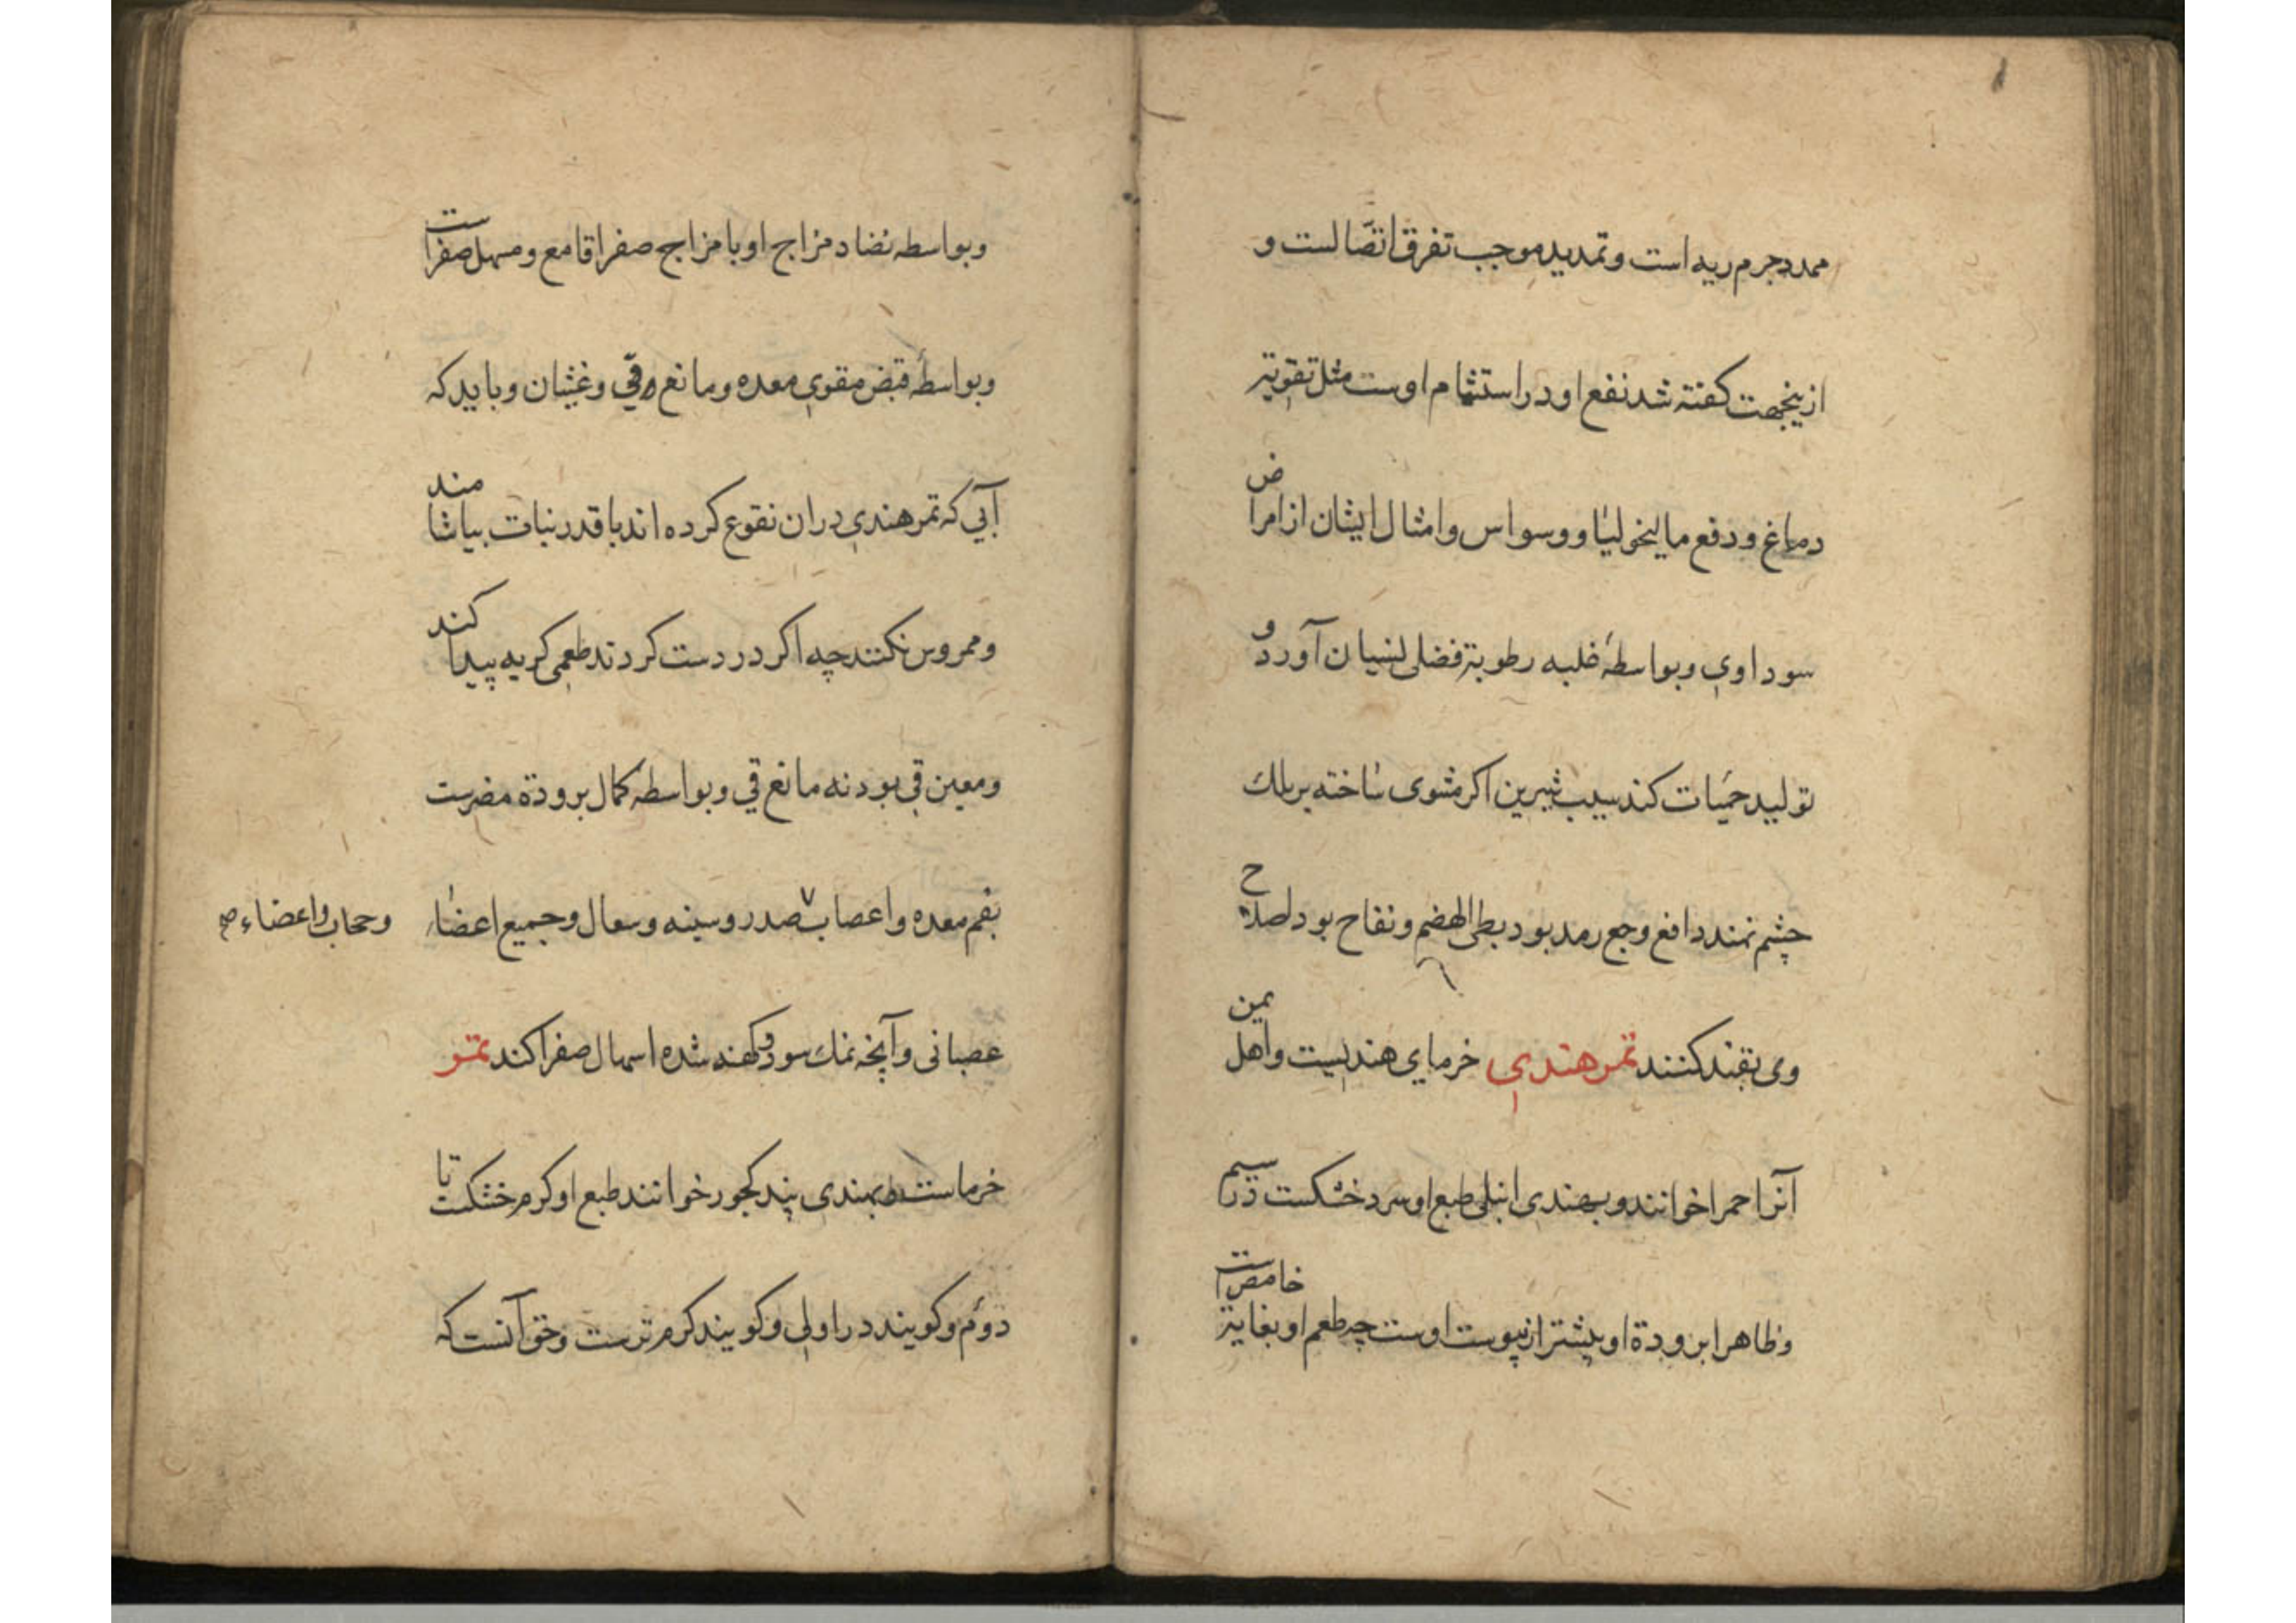 ممدد جرم ریه است و تمدید موجب تفرق اتصّالست و
ازینجهت کفته شد نفع او در استشمام اوست مثل تقویة
دماغ و دفع مالیخولیا و وسواس و امثال ایشان از امراض
سوداوی و بواسطهٔ غلبه رطوبة فضلی نسیان آورد و
تولید حمیات کند سیب شیرین اکر مشوی ساخته بر پلک
چشم نهند دافع وجع رمد بود بطی الهضم و نفاح بود اصلاح
وی بقند کنند تمر هندي خرمای هندیست و اهل یمن
آنرا حمرا خوانند و بهندی انبلی طبع او سرد خشکست در سیم
و ظاهرا برودة او بیشتر از یبوست اوست چه طعم او بغایة خامض است
و بواسطه تضاد مزاج او با مزاج صفرا قامع و مسهل صفراست
و بواسطهٔ قبض مقوي معده و مانع قي و غثیان و باید که
آبي که تمر هندي دران نقوع کرده اند با قدر نبات بیاشامند
و ممروس نکنند چه اکر در دست کردند طعمی کریه پیدا کند
و معین قي بود نه مانع قي و بواسطهٔ کمال برودة مضرست
بفم معده و اعصاب صدر و سینه و سعال و جمیع اعضاء
و حجاب و اعضاء صح
عصبانی و آنچه نمک سود و کهنه شده اسهال صفرا کند تمر
خرماست و بهندی پندکجور خوانند طبع او کرم خشکست تا
دوئم و کویند در اولی و کویند کرم ترست و حق آنست که